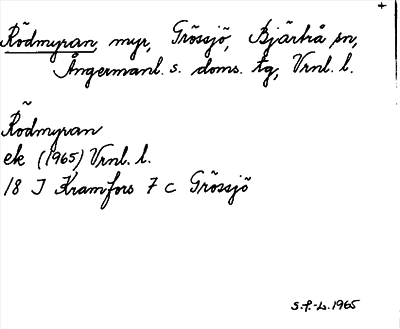 +
Rödmyran, myr, Grössjö, Bjärtrå sn,
Ångermanl. s. doms. tg, Vrnl. l.
Rödmyran
ek (1965) Vrnl. l.
18 J Kramfors 7 c Grössjö
S.F.-L. 1965